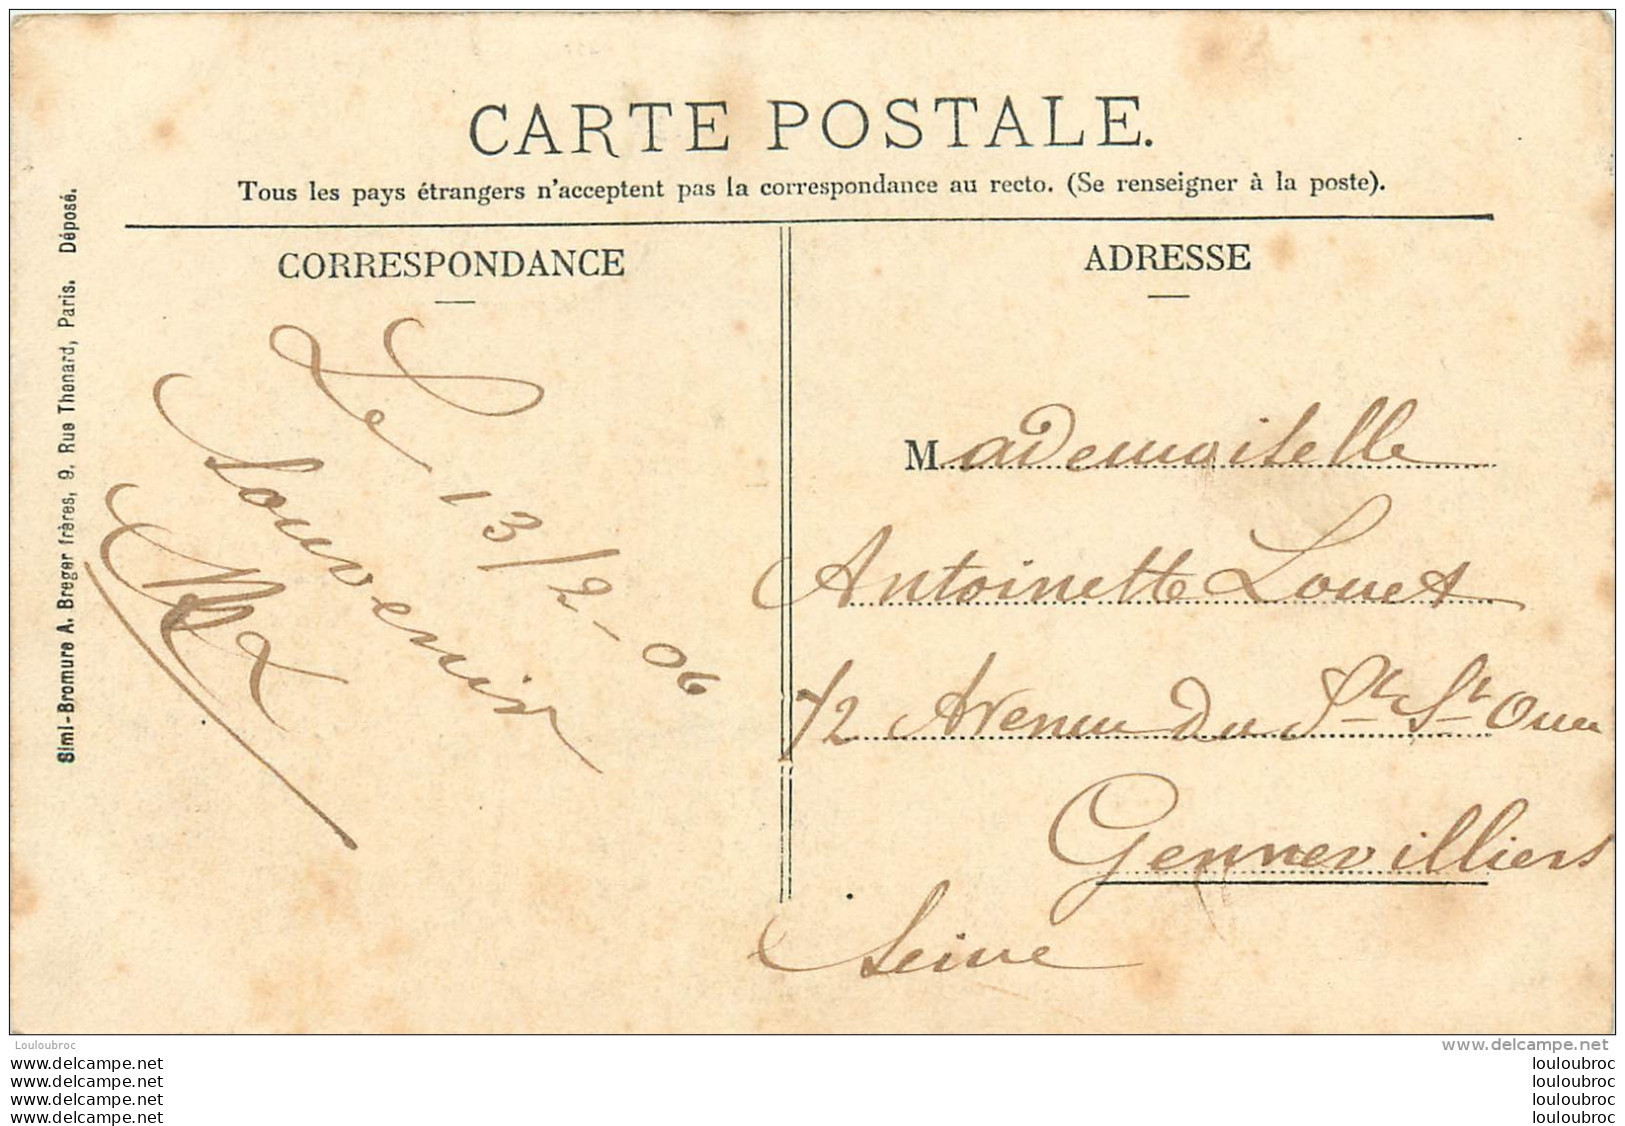 CARTE POSTALE.
Tous les pays étrangers n'acceptent pas la correspondance au recto. (Se renseigner à la poste).
CORRESPONDANCE
Le 13/2-06
Souvenir
ADRESSE
Mademoiselle
Antoinette Louet
72 Avenue du Pt St Ouen
Gennevilliers
Seine
Simi-Bromure A. Breger frères, 9. Rue Thenard, Paris. Déposé.
Louloubroc
www.delcampe.net
www.delcampe.net
www.delcampe.net
www.delcampe.net
www.delcampe.net
louloubroc
louloubroc
louloubroc
louloubroc